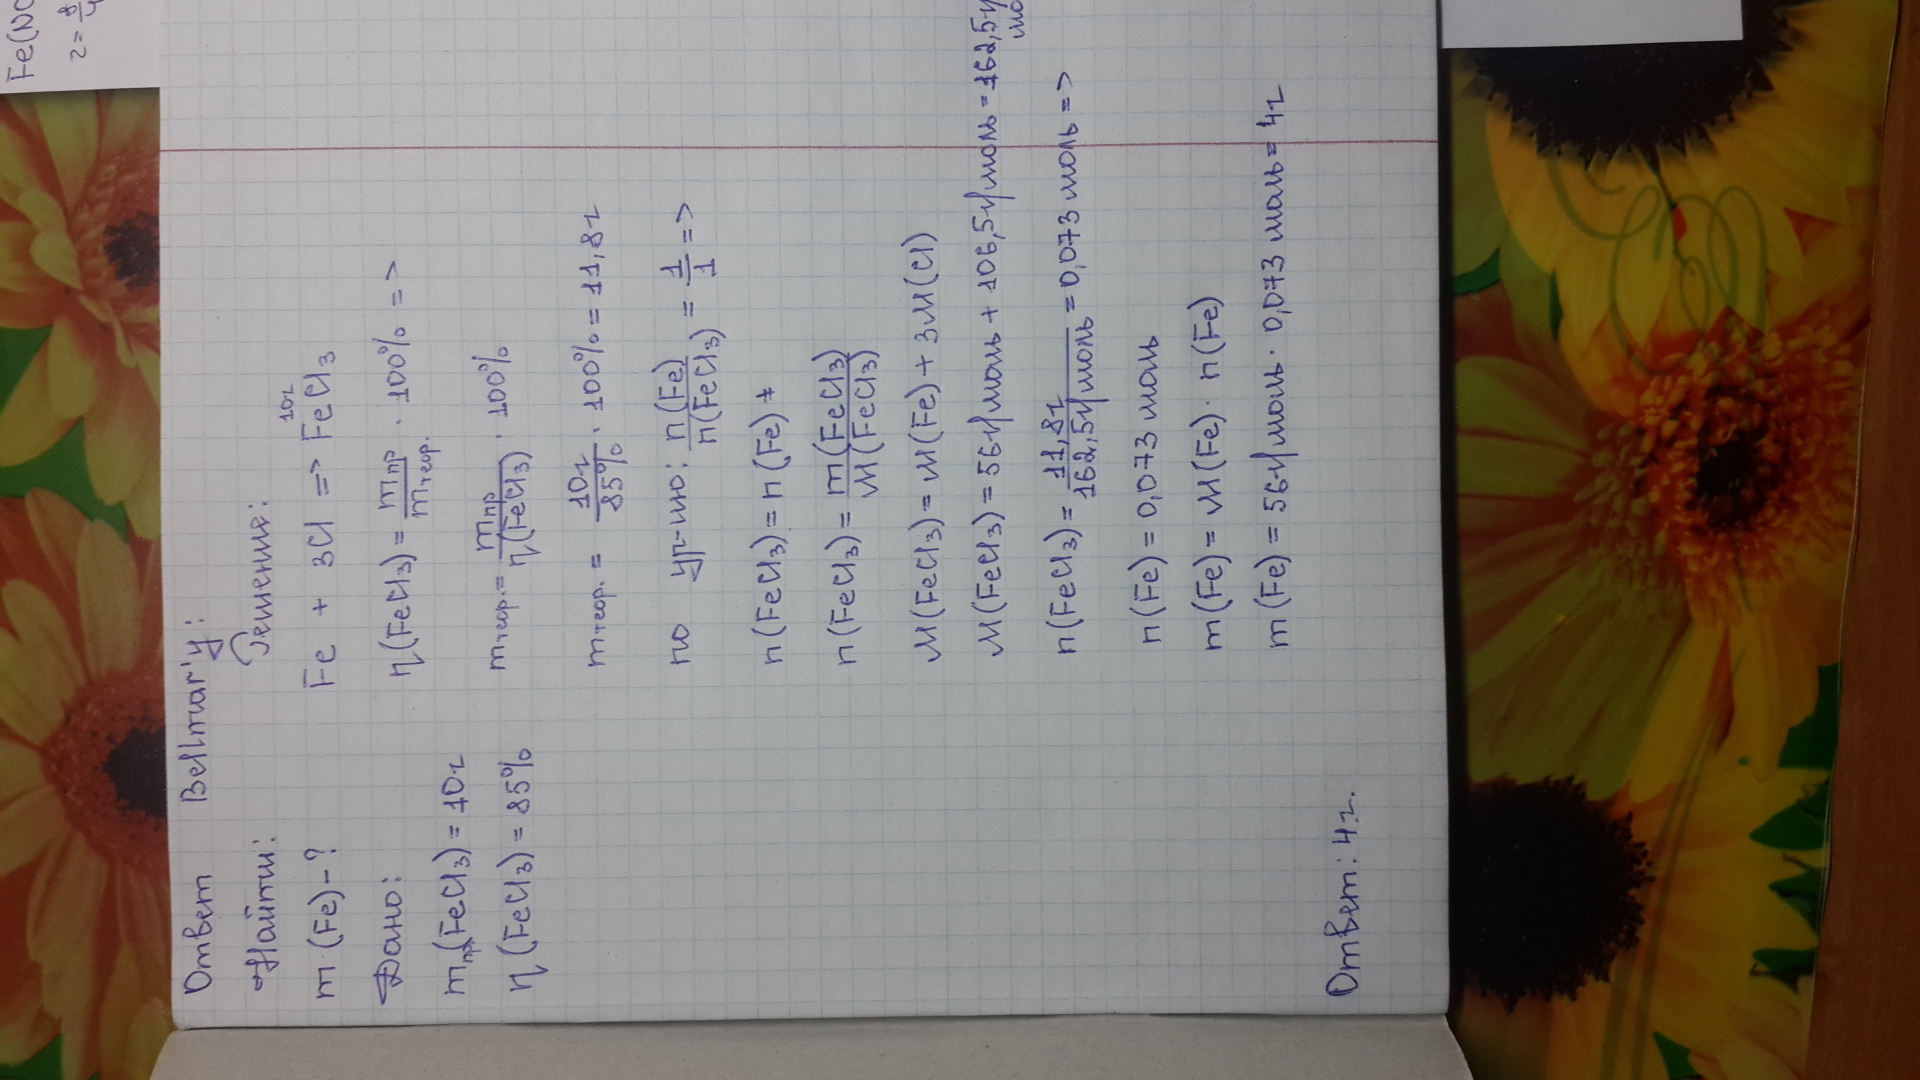 Fe(NO
Ответ Bellmar'у:
Найти:
m(Fe)-?
Дано:
mпр(FeCl3)=10г
η(FeCl3)=85%
Решение:
10г
Fe + 3Cl => FeCl3
η(FeCl3)= mпр/mтеор. · 100% =>
mтеор.= mпр/η(FeCl3) · 100%
mтеор. = 10г/85% · 100% = 11,8г
по ур-ию: n(Fe)/n(FeCl3) = 1/1 =>
n(FeCl3)= n(Fe)
n(FeCl3)= m(FeCl3)/M(FeCl3)
M(FeCl3)=M(Fe)+3M(Cl)
M(FeCl3)=56г/моль+106,5г/моль=162,5г/мо
n(FeCl3)= 11,8г/162,5г/моль =0,073 моль =>
n(Fe)=0,073 моль
m(Fe)=M(Fe)·n(Fe)
m(Fe)=56г/моль·0,073 моль=4г
Ответ: 4г.